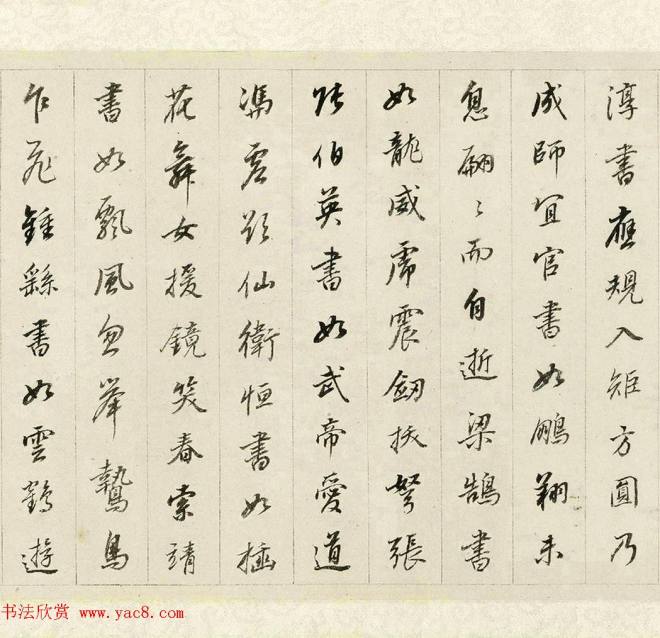 淳書應規入矩方圓乃
成師宜官書如鵬翔未
息翩〻而自逝梁鵠書
如龍威虎震劒拔弩張
張伯英書如武帝愛道
馮虛欲仙衛恒書如插
花舞女援鏡笑春索靖
書如飄風忽舉鷙鳥
乍飛鍾繇書如雲鶴遊
书法欣赏 www.yac8.com